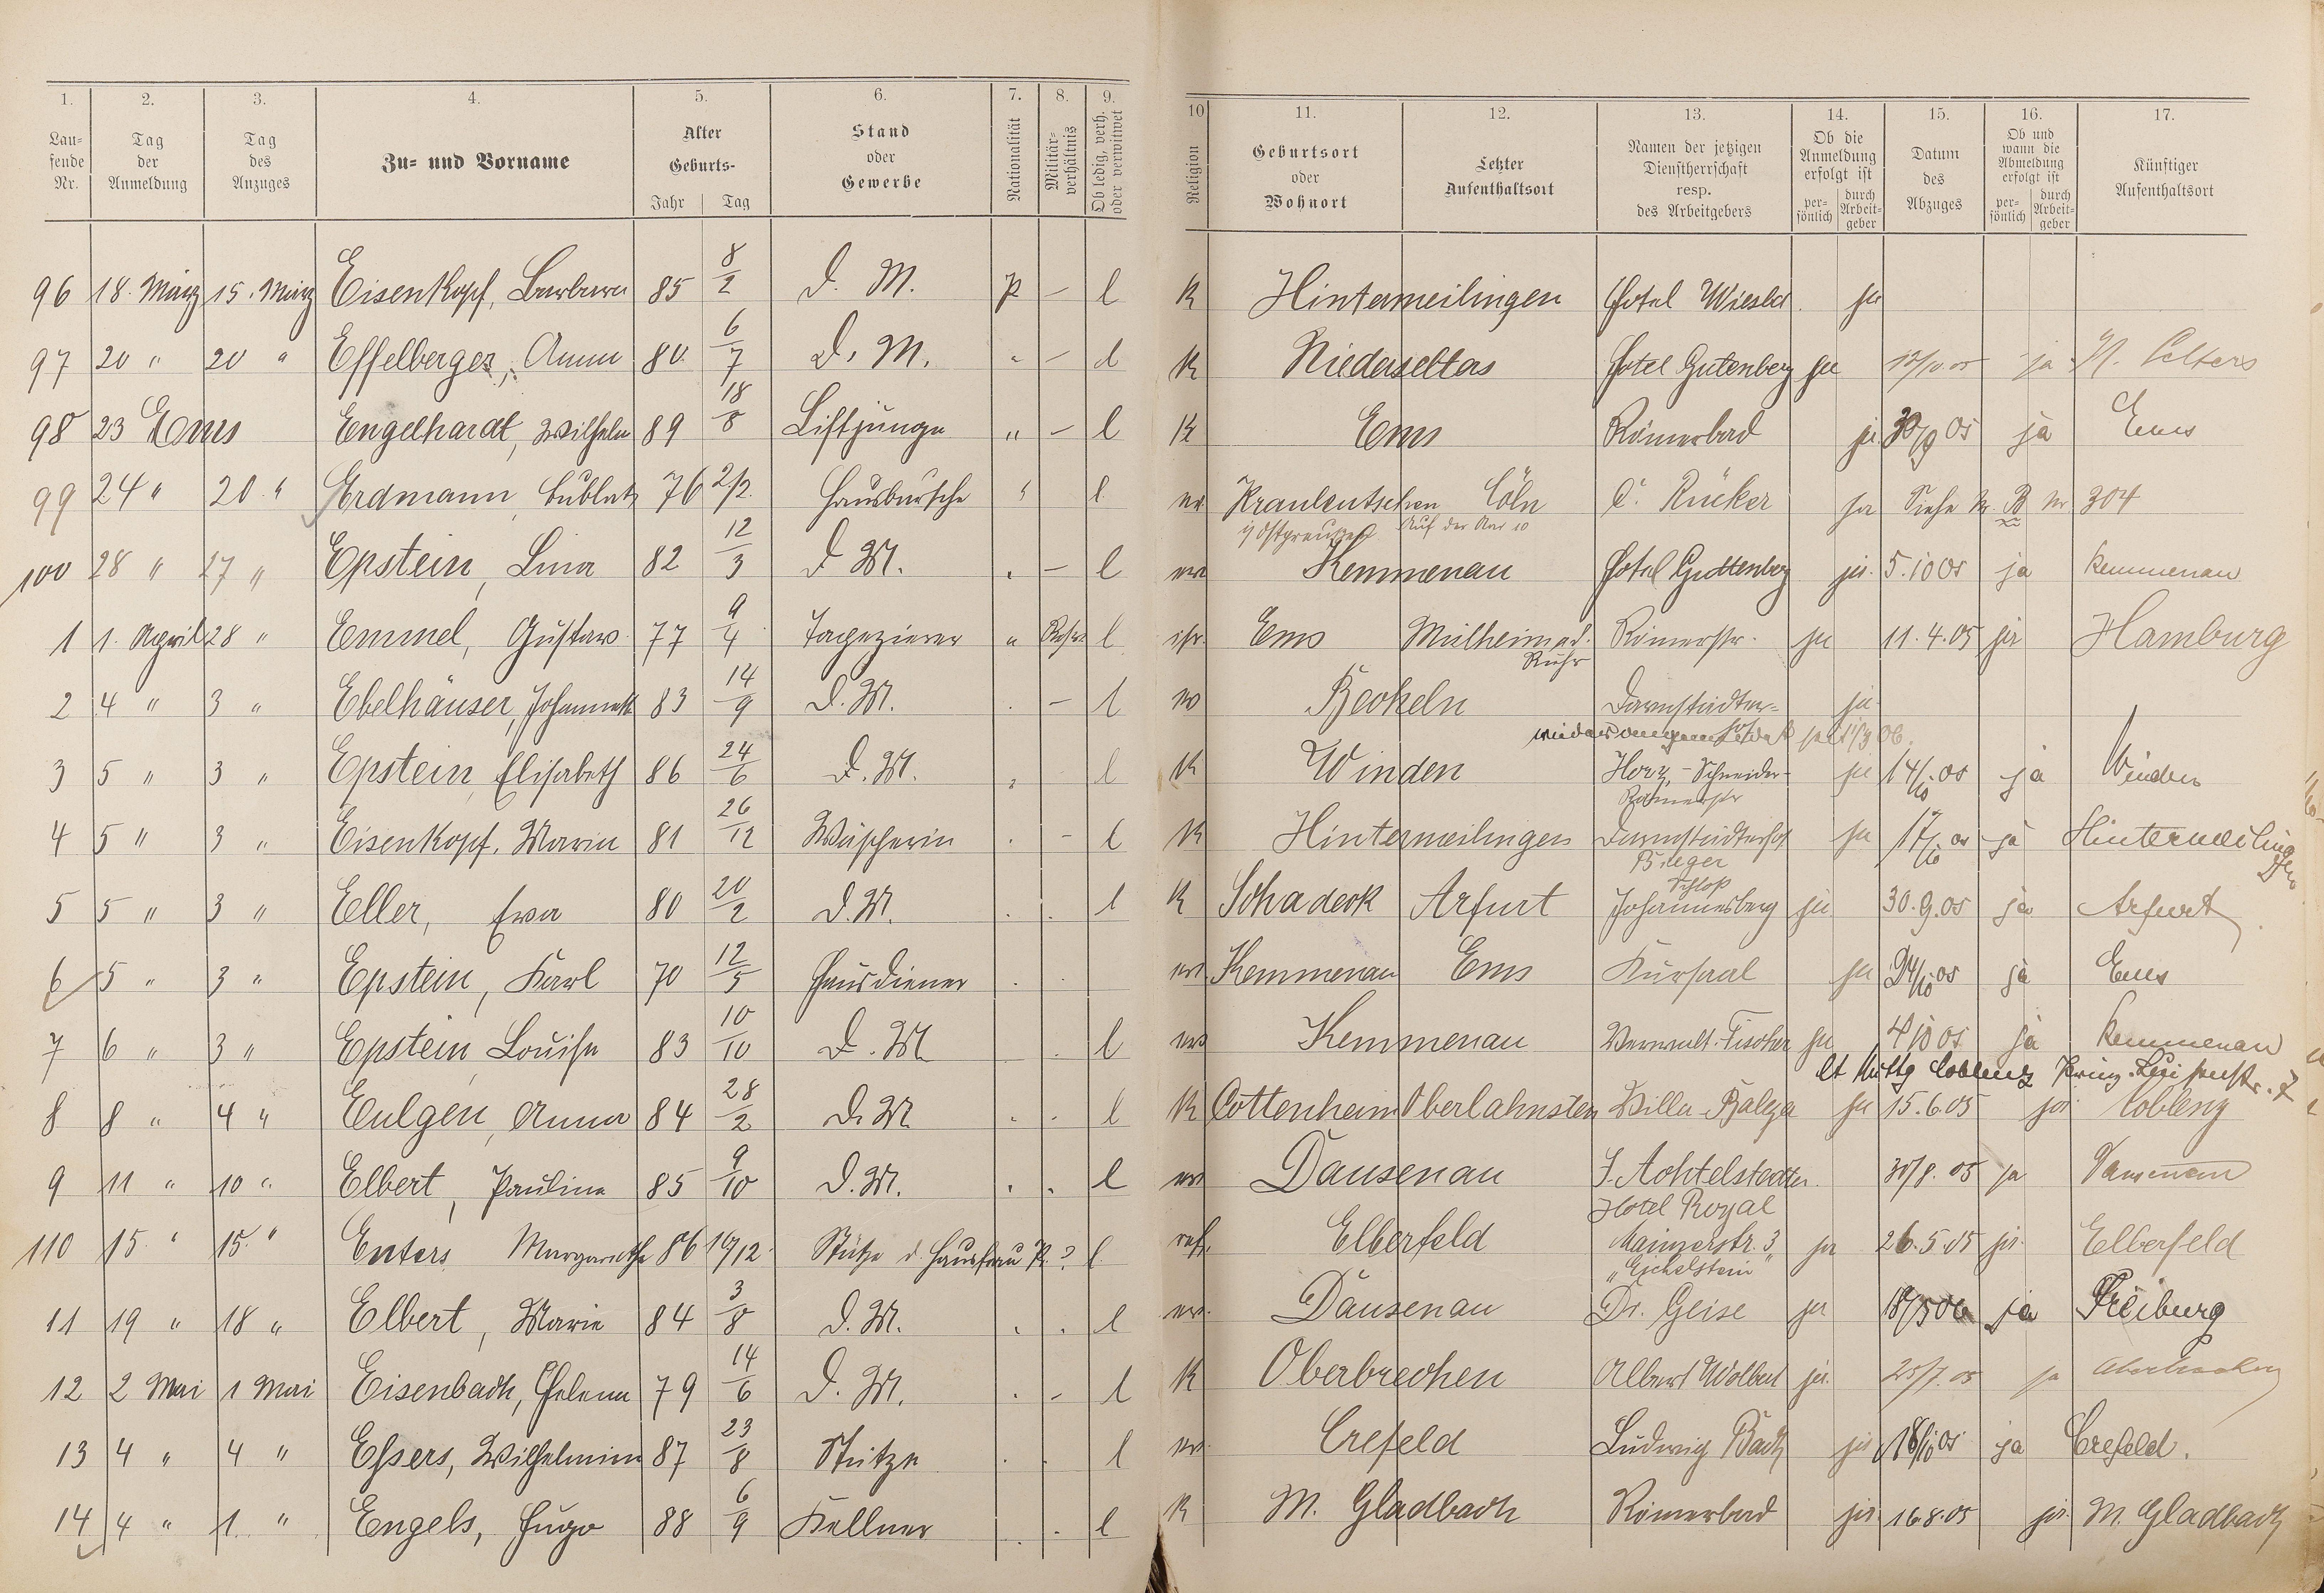 1. 2. 3. 4. 5. 6. 7. 8. 9. 10 11. 12. 13. 14. 15. 16. 17.
Lau-
fende
Nr.
Tag
der
Anmeldung
Tag
des
Anzuges
Zu- und Vorname
Alter
Geburts-
Jahr Tag
Stand
oder
Gewerbe
Nationalität
Militär-
verhältnis
Ob ledig, verh.
oder verwitwet
Religion
Geburtsort
oder
Wohnort
Letzter
Aufenthaltsort
Namen der jetzigen
Dienstherrschaft
resp.
des Arbeitgebers
Ob die
Anmeldung
erfolgt ist
per-
sönlich
durch
Arbeit-
geber
Datum
des
Abzuges
Ob und
wann die
Abmeldung
erfolgt ist
per-
sönlich
durch
Arbeit-
geber
Künftiger
Aufenthaltsort
96 18. März 15. März Eisenkopf, Barbara 85 8/2 D. M. P – l K Hintermeilingen Hotel Wiesbd. ja
97 20 " 20 " Effelberger, Anna 80. 6/7 D. M. " – l K Niederselters Hotel Gutenberg ja ja N. Selters
98 23 Ems Engelhardt, Wilhelm 89 18/8 Liftjunge " – l K Ems Römerbad ja 30/9 05 ja Ems
99 24 " 20. " Erdmann, 76 2/2. Hausbursche " l. ev. Cöln C. Rücker ja Siehe B Nr 304
i/ Ostpreußen Auf der Aar 10
100 28 " 27 " Epstein, Lina 82 12/3 D M. . – l ev. Kemmenau Hotel Guttenberg ja. 5.10 05 ja Kemmenau
1 1. April 28 " Emmel, Gustav 77 9/4 Tapezierer " Reserv l isr. Ems Mülheim a.d. Römerstr. ja 11.4.05 ja Hamburg
Ruhr
2 4 " 3 " Ebelhäuser, Johannette 83 14/9 D. M. . – l ev Beckeln Darmstädter= ja
wieder angemeldet
3 5 " 3 " Epstein, Elisabeth 86 24/6 D. M. " l K Winden Horz, – Schneider– ja 14/10 05 ja Winden
Römerstr
4 5 " 3 " Eisenkopf, Maria 81 26/12 Wäscherin . – l K Hintermeilingen Darmstädterhof ja 17/10 05 ja Hintermeilingen
5 5 " 3 " Eller, Eva 80 20/2 D. M. . . l K Schadeck Arfurt Schloß
Johannesberg ja 30.9.05 ja Arfurt
6 5 " 3 " Epstein, Karl 70 12/5 Hausdiener . . ev. Kemmenau Ems Kursaal ja 24/10 05 ja Ems
7 6 " 3 " Epstein, Louise 83 10/10 D. M. l ev Kemmenau Verwalt. Fischer ja 4 10 05 ja Kemmenau
lt Mittg Coblenz
8 8 " 4 " Eulgen, Anna 84 28/2 D. M. . . l K Cottenheim Oberlahnstein Villa Balzer ja 15.6.05 ja Coblenz
9 11 " 10 " Elbert, Pauline 85 9/10 D. M. . . l ev Dausenau J. Achtelstetter 30/8. 05 ja Dausenau
Hotel Royal
110 15. " 15. " Enters Margarethe 86 10/12. Stütze d. Hausfrau P. ? l. ref. Elberfeld Mainzerstr. 3 ja 26.5.05 ja. Elberfeld
"Eichelstein"
11 19 " 18 " Elbert, Marie 84 3/8 D. M. . . l ev. Dausenau Dr. Geise ja 18/5 06 ja Freiburg
12 2 Mai 1 Mai Eisenbach, Helena 79 14/6 D. M. . – l K Oberbrechen Albert Wolbert ja. 25/7. 05 ja
13 4 " 4 " Essers, Wilhelmine 87 23/8 Stütze . . l ev. Crefeld Ludwig Bach ja 18/10 05 ja Crefeld.
14 4 " 1. " Engels, Hugo 88 6/9 Kellner . . l K M. Gladbach Römerbad ja. 16.8.05 ja. M. Gladbach